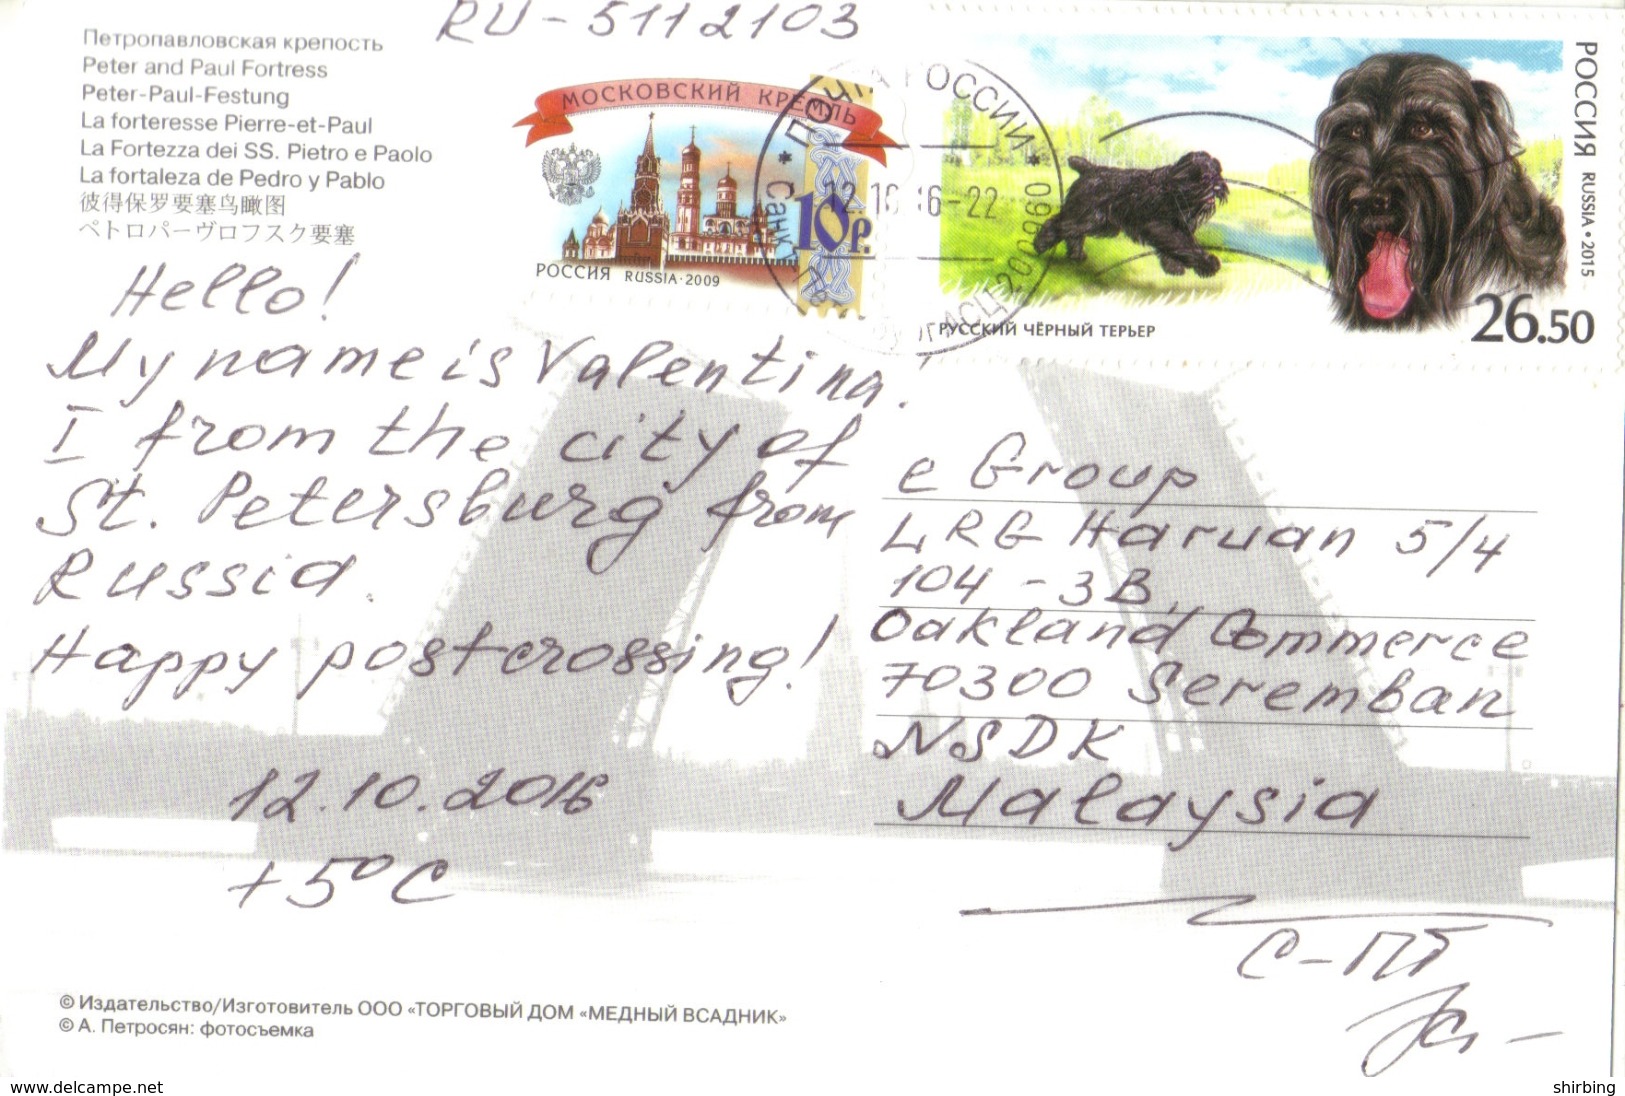 RU-5112103
Петропавловская крепость
Peter and Paul Fortress
Peter-Paul-Festung
La forteresse Pierre-et-Paul
La Fortezza dei SS. Pietro e Paolo
La fortaleza de Pedro y Pablo
彼得保罗要塞鸟瞰图
ペトロパーヴロフスク要塞
МОСКОВСКИЙ КРЕМЛЬ
10р.
РОССИЯ RUSSIA·2009
ПОЧТА РОССИИ
12 10 16-22
РОССИЯ RUSSIA·2015
26.50
РУССКИЙ ЧЁРНЫЙ ТЕРЬЕР
Hello!
My name is Valentina!
I from the city of
St. Petersburg from
Russia.
Happy postcrossing!
12.10.2016
+5°C
e Group
LRG Haruan 5/4
104-3B,
Oakland Commerce
70300 Seremban
NSDK
Malaysia
С-ПБ
© Издательство/Изготовитель ООО «ТОРГОВЫЙ ДОМ «МЕДНЫЙ ВСАДНИК»
© А. Петросян: фотосъемка
www.delcampe.net
shirbing